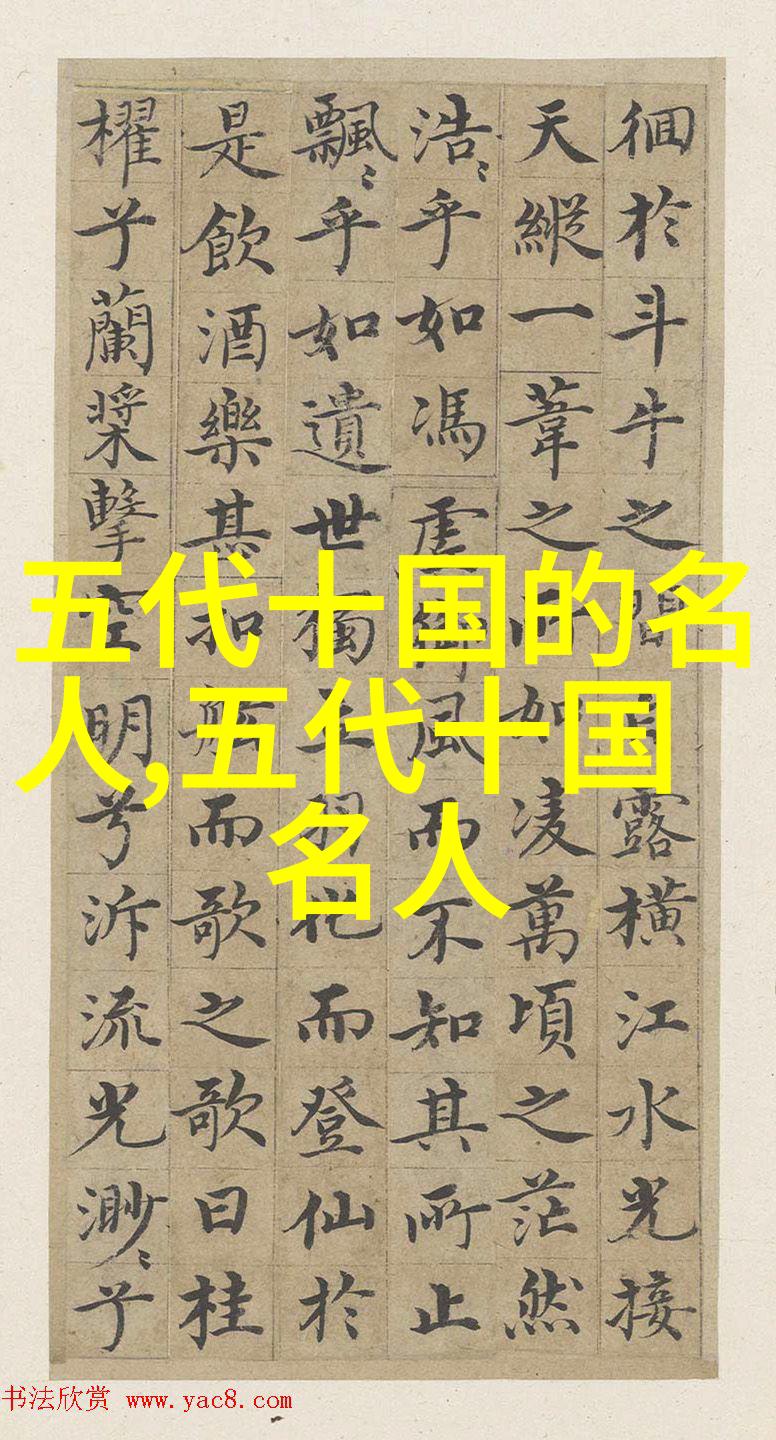 徊於斗牛之間白露橫江水光接
天縱一葦之所如凌萬頃之茫然
浩〻乎如馮虛御風而不知其所止
飄〻乎如遺世獨立羽化而登仙於
是飲酒樂甚扣舷而歌之歌曰桂
櫂兮蘭槳擊空明兮泝流光渺〻兮
五代十国的名
人,五代十国
名人
书法欣赏 www.yac8.com